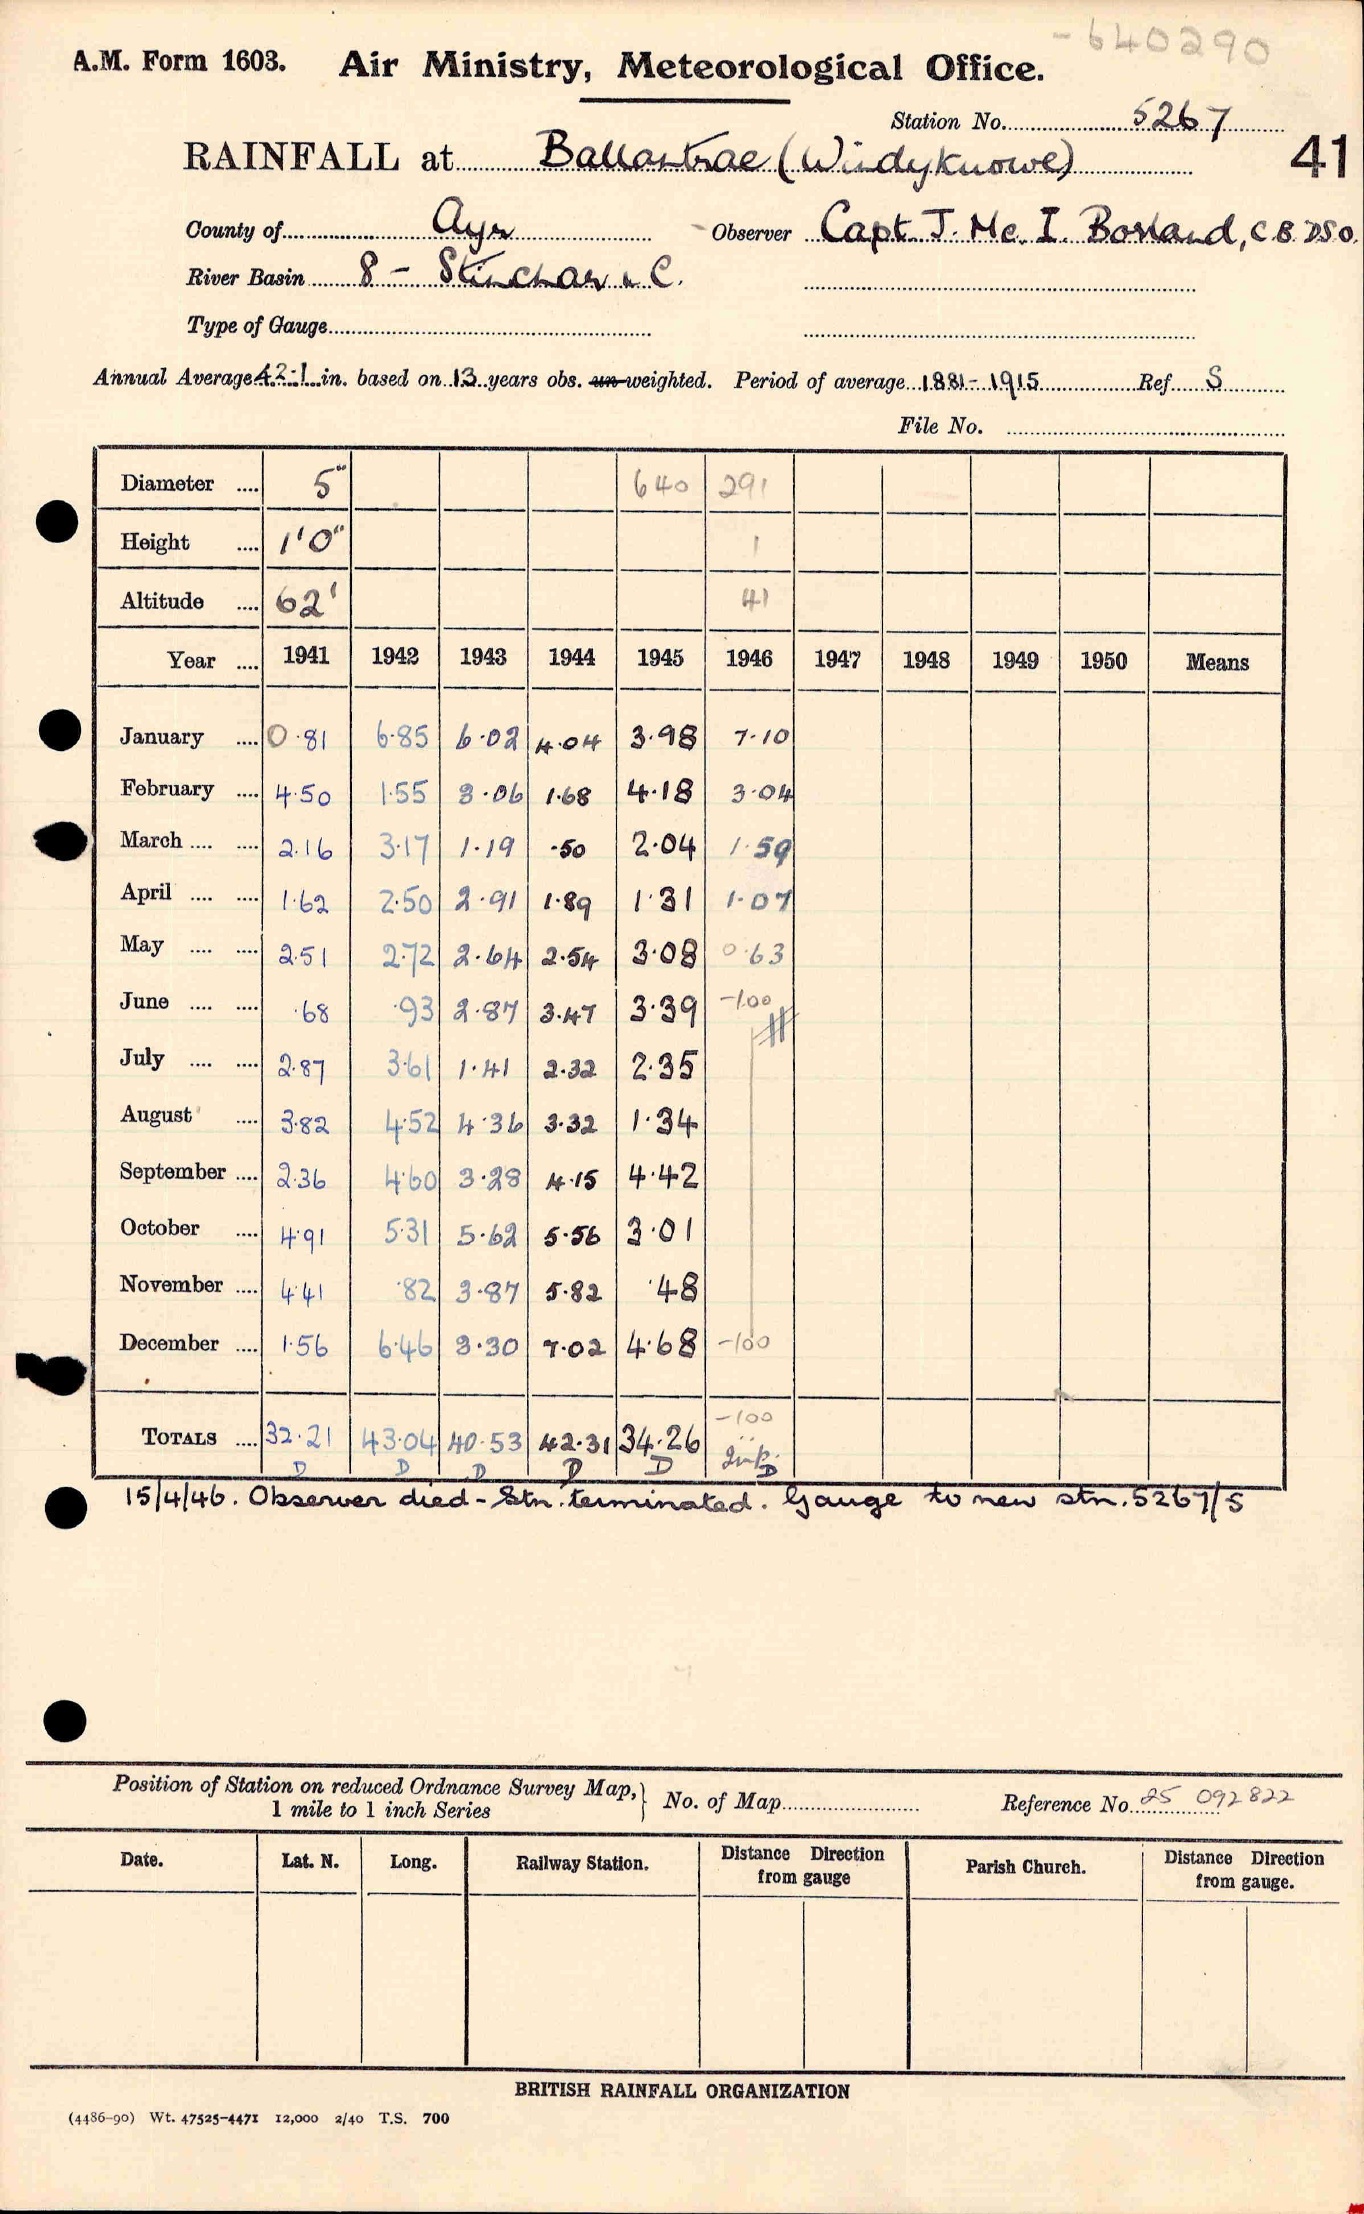 -640290
A.M. Form 1603. Air Ministry, Meteorological Office.
Station No. 5267
RAINFALL at Ballantrae (Windyknowe) 41
County of Ayr Observer Capt J. Mc. I. Borland, C.B. DSO.
River Basin 8 - Stinchar & C.
Type of Gauge
Annual Average 42.1 in. based on 13 years obs. un-weighted. Period of average 1881-1915 Ref S
File No.
Diameter .... 5" 640 291
Height .... 1'0" 1
Altitude .... 62' 41
Year .... 1941 1942 1943 1944 1945 1946 1947 1948 1949 1950 Means
January .... 0.81 6.85 6.02 4.04 3.98 7.10
February .... 4.50 1.55 3.06 1.68 4.18 3.04
March .... .... 2.16 3.17 1.19 .50 2.04 1.59
April .... .... 1.62 2.50 2.91 1.89 1.31 1.07
May .... .... 2.51 2.72 2.64 2.54 3.08 0.63
June .... .... .68 .93 2.87 3.47 3.39 -100
July .... .... 2.87 3.61 1.41 2.32 2.35
August .... 3.82 4.52 4.36 3.32 1.34
September .... 2.36 4.60 3.28 4.15 4.42
October .... 4.91 5.31 5.62 5.56 3.01
November .... 4.41 .82 3.87 5.82 .48
December .... 1.56 6.46 3.30 7.02 4.68 -100
-100
TOTALS .... 32.21 43.04 40.53 42.31 34.26
D D D D D D
15/4/46. Observer died - Stn. terminated. Gauge to new stn. 5267/5
Position of Station on reduced Ordnance Survey Map,
1 mile to 1 inch Series } No. of Map Reference No. 25 092822
Date. Lat. N. Long. Railway Station. Distance Direction from gauge Parish Church. Distance Direction from gauge.
BRITISH RAINFALL ORGANIZATION
(4486-90) Wt. 47525-4471 12,000 2/40 T.S. 700